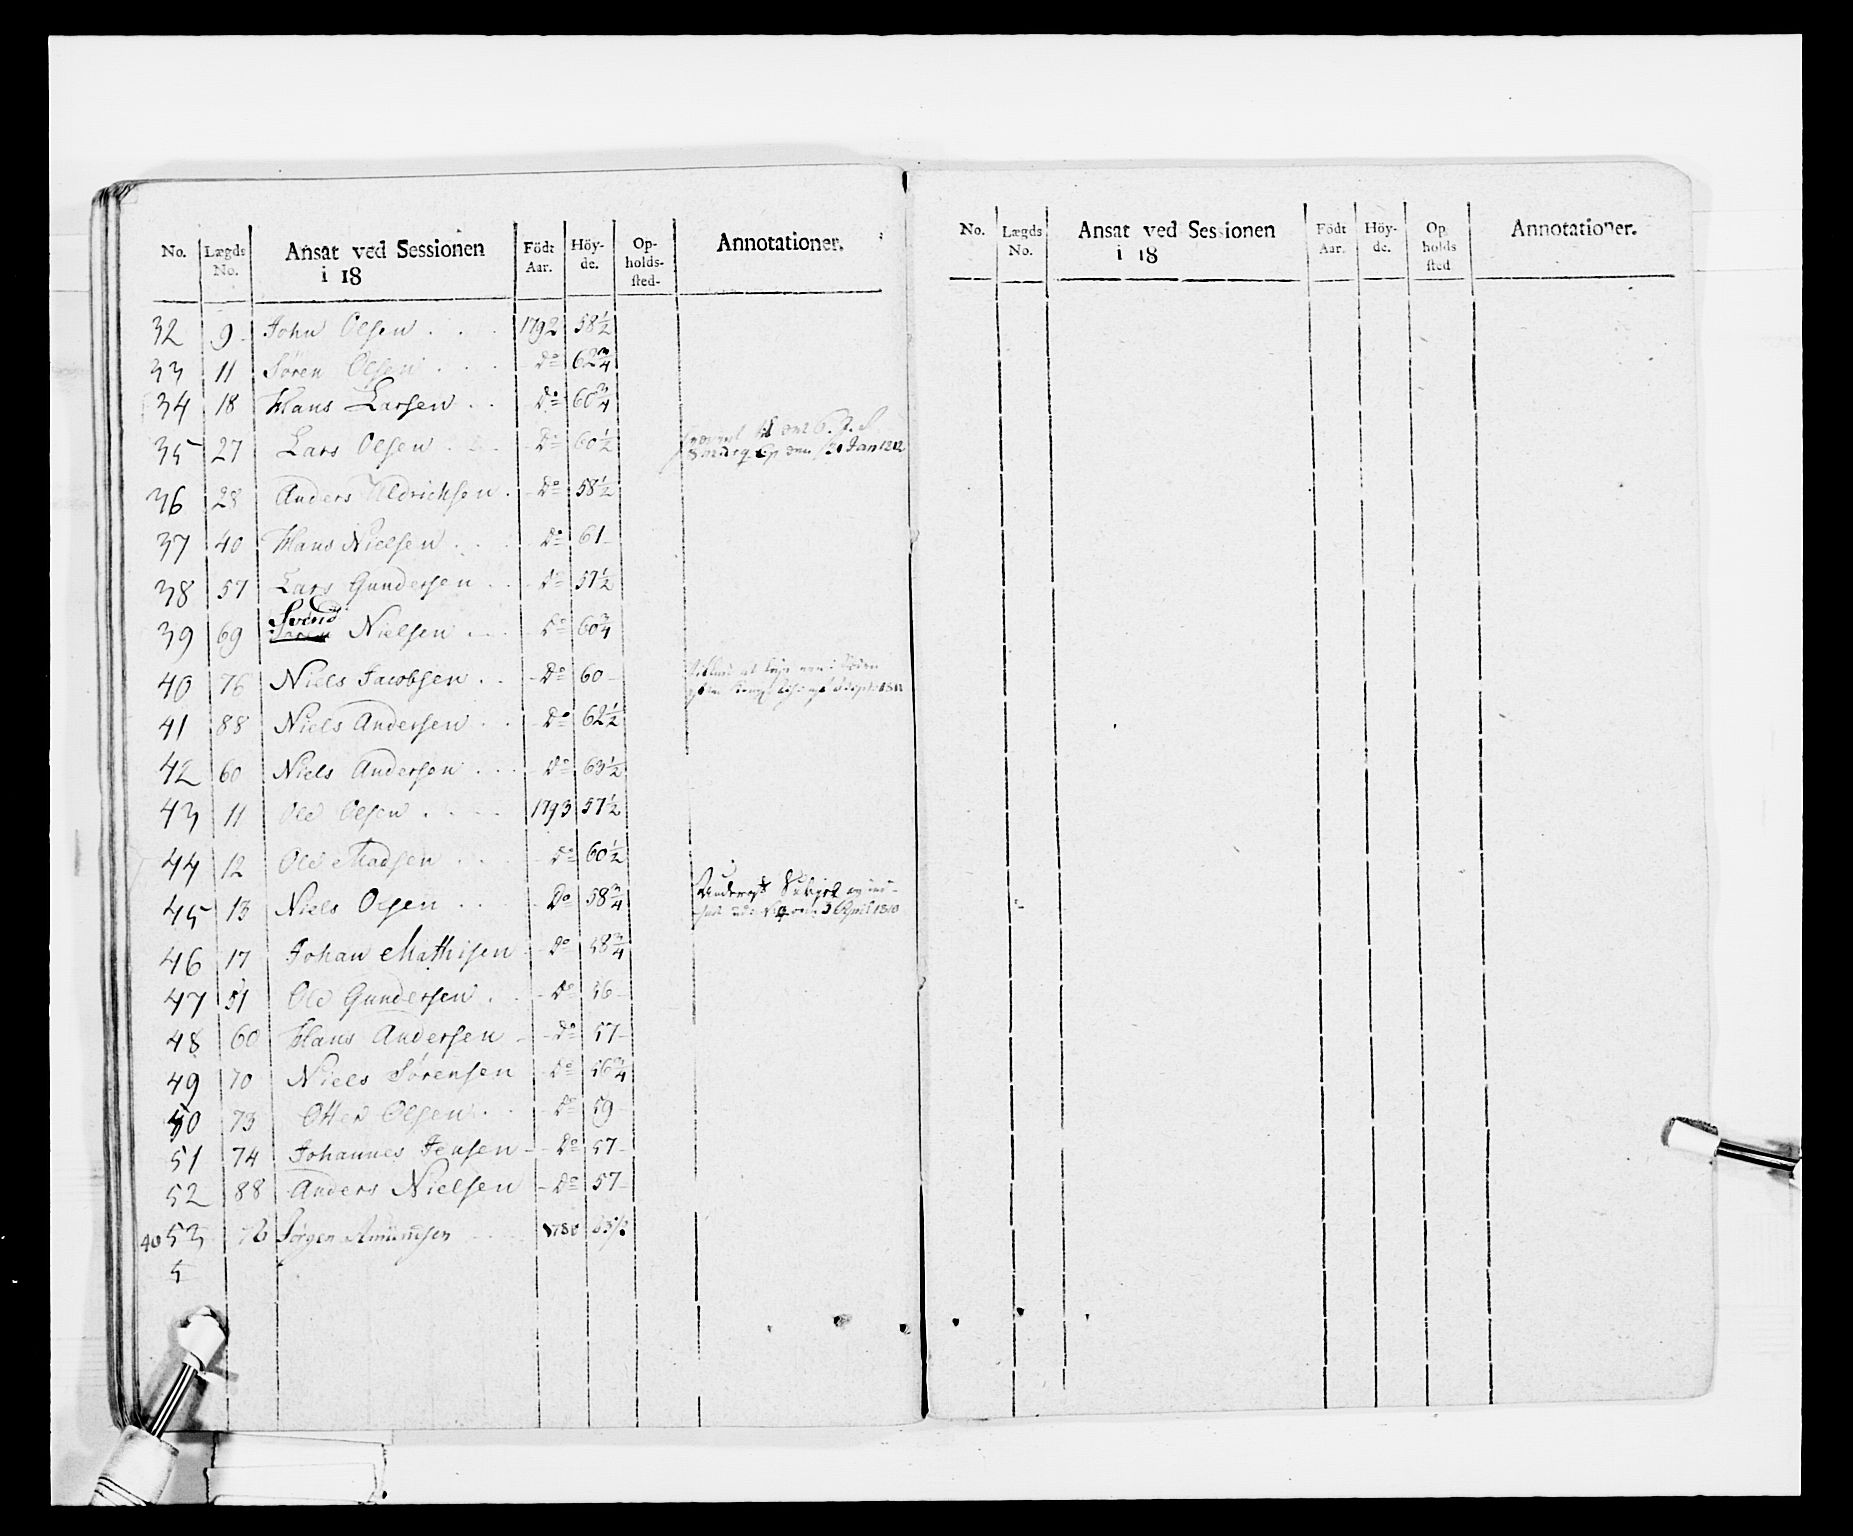 No. Lægds No. Ansat ved Sessionen i 18 Födt Aar. Höy-de. Op-holds-sted- Annotationer.
32 9 John Olsen 1792 58 1/2
33 11 Sören Olsen Do 62 3/4
34 18 Hans Larsen Do 60 3/4
35 27 Lars Olsen Do 60 1/2 den Jan 1812
36 28 Anders Uldrichsen Do 58 1/2
37 40 Hans Nielsen Do 61
38 57 Lars Gundersen Do 57 1/2
39 69 Svend Nielsen Do 60 3/4
40 76 Niels Jacobsen Do 60 1811
41 88 Niels Andersen Do 62 1/2
42 60 Niels Andersen Do 63 1/2
43 11 Ole Olsen 1793 57 1/2
44 12 Ole Madsen Do 60 1/2
45 13 Niels Olsen Do 58 3/4 3 April 1810
46 17 Johan Mathisen Do 58 3/4
47 51 Ole Gundersen Do 56
48 60 Hans Andersen Do 57
49 70 Niels Sörensen Do 56 3/4
50 73 Otter Olsen Do 59
51 74 Johannes Jensen Do 57
52 88 Anders Nielsen Do 57
40 53 76 Jörgen Amundsen 1780 63 1/2
5
No. Lægds No. Ansat ved Sessionen i 18 Födt Aar. Höy-de. Op holds sted Annotationer.